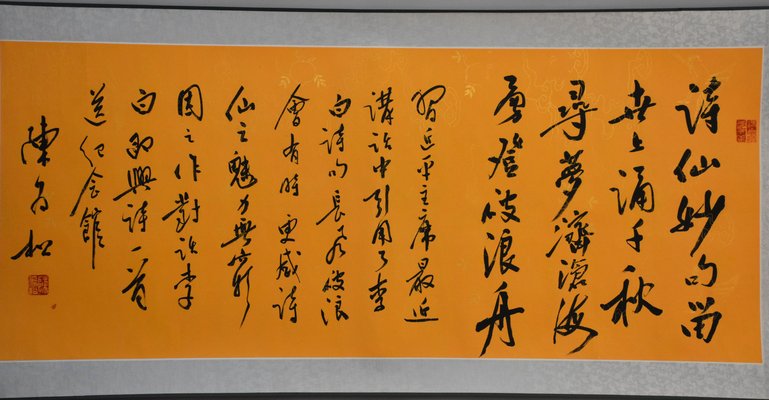 詩仙妙句留
世上誦千秋
尋夢濟滄海
勇登破浪舟
習近平主席最近
講話中引用了李
白詩句長風破浪
會有時更感詩
仙之魅力無窮
因之作對話李
白即興詩一首
送紀念館
陳 松